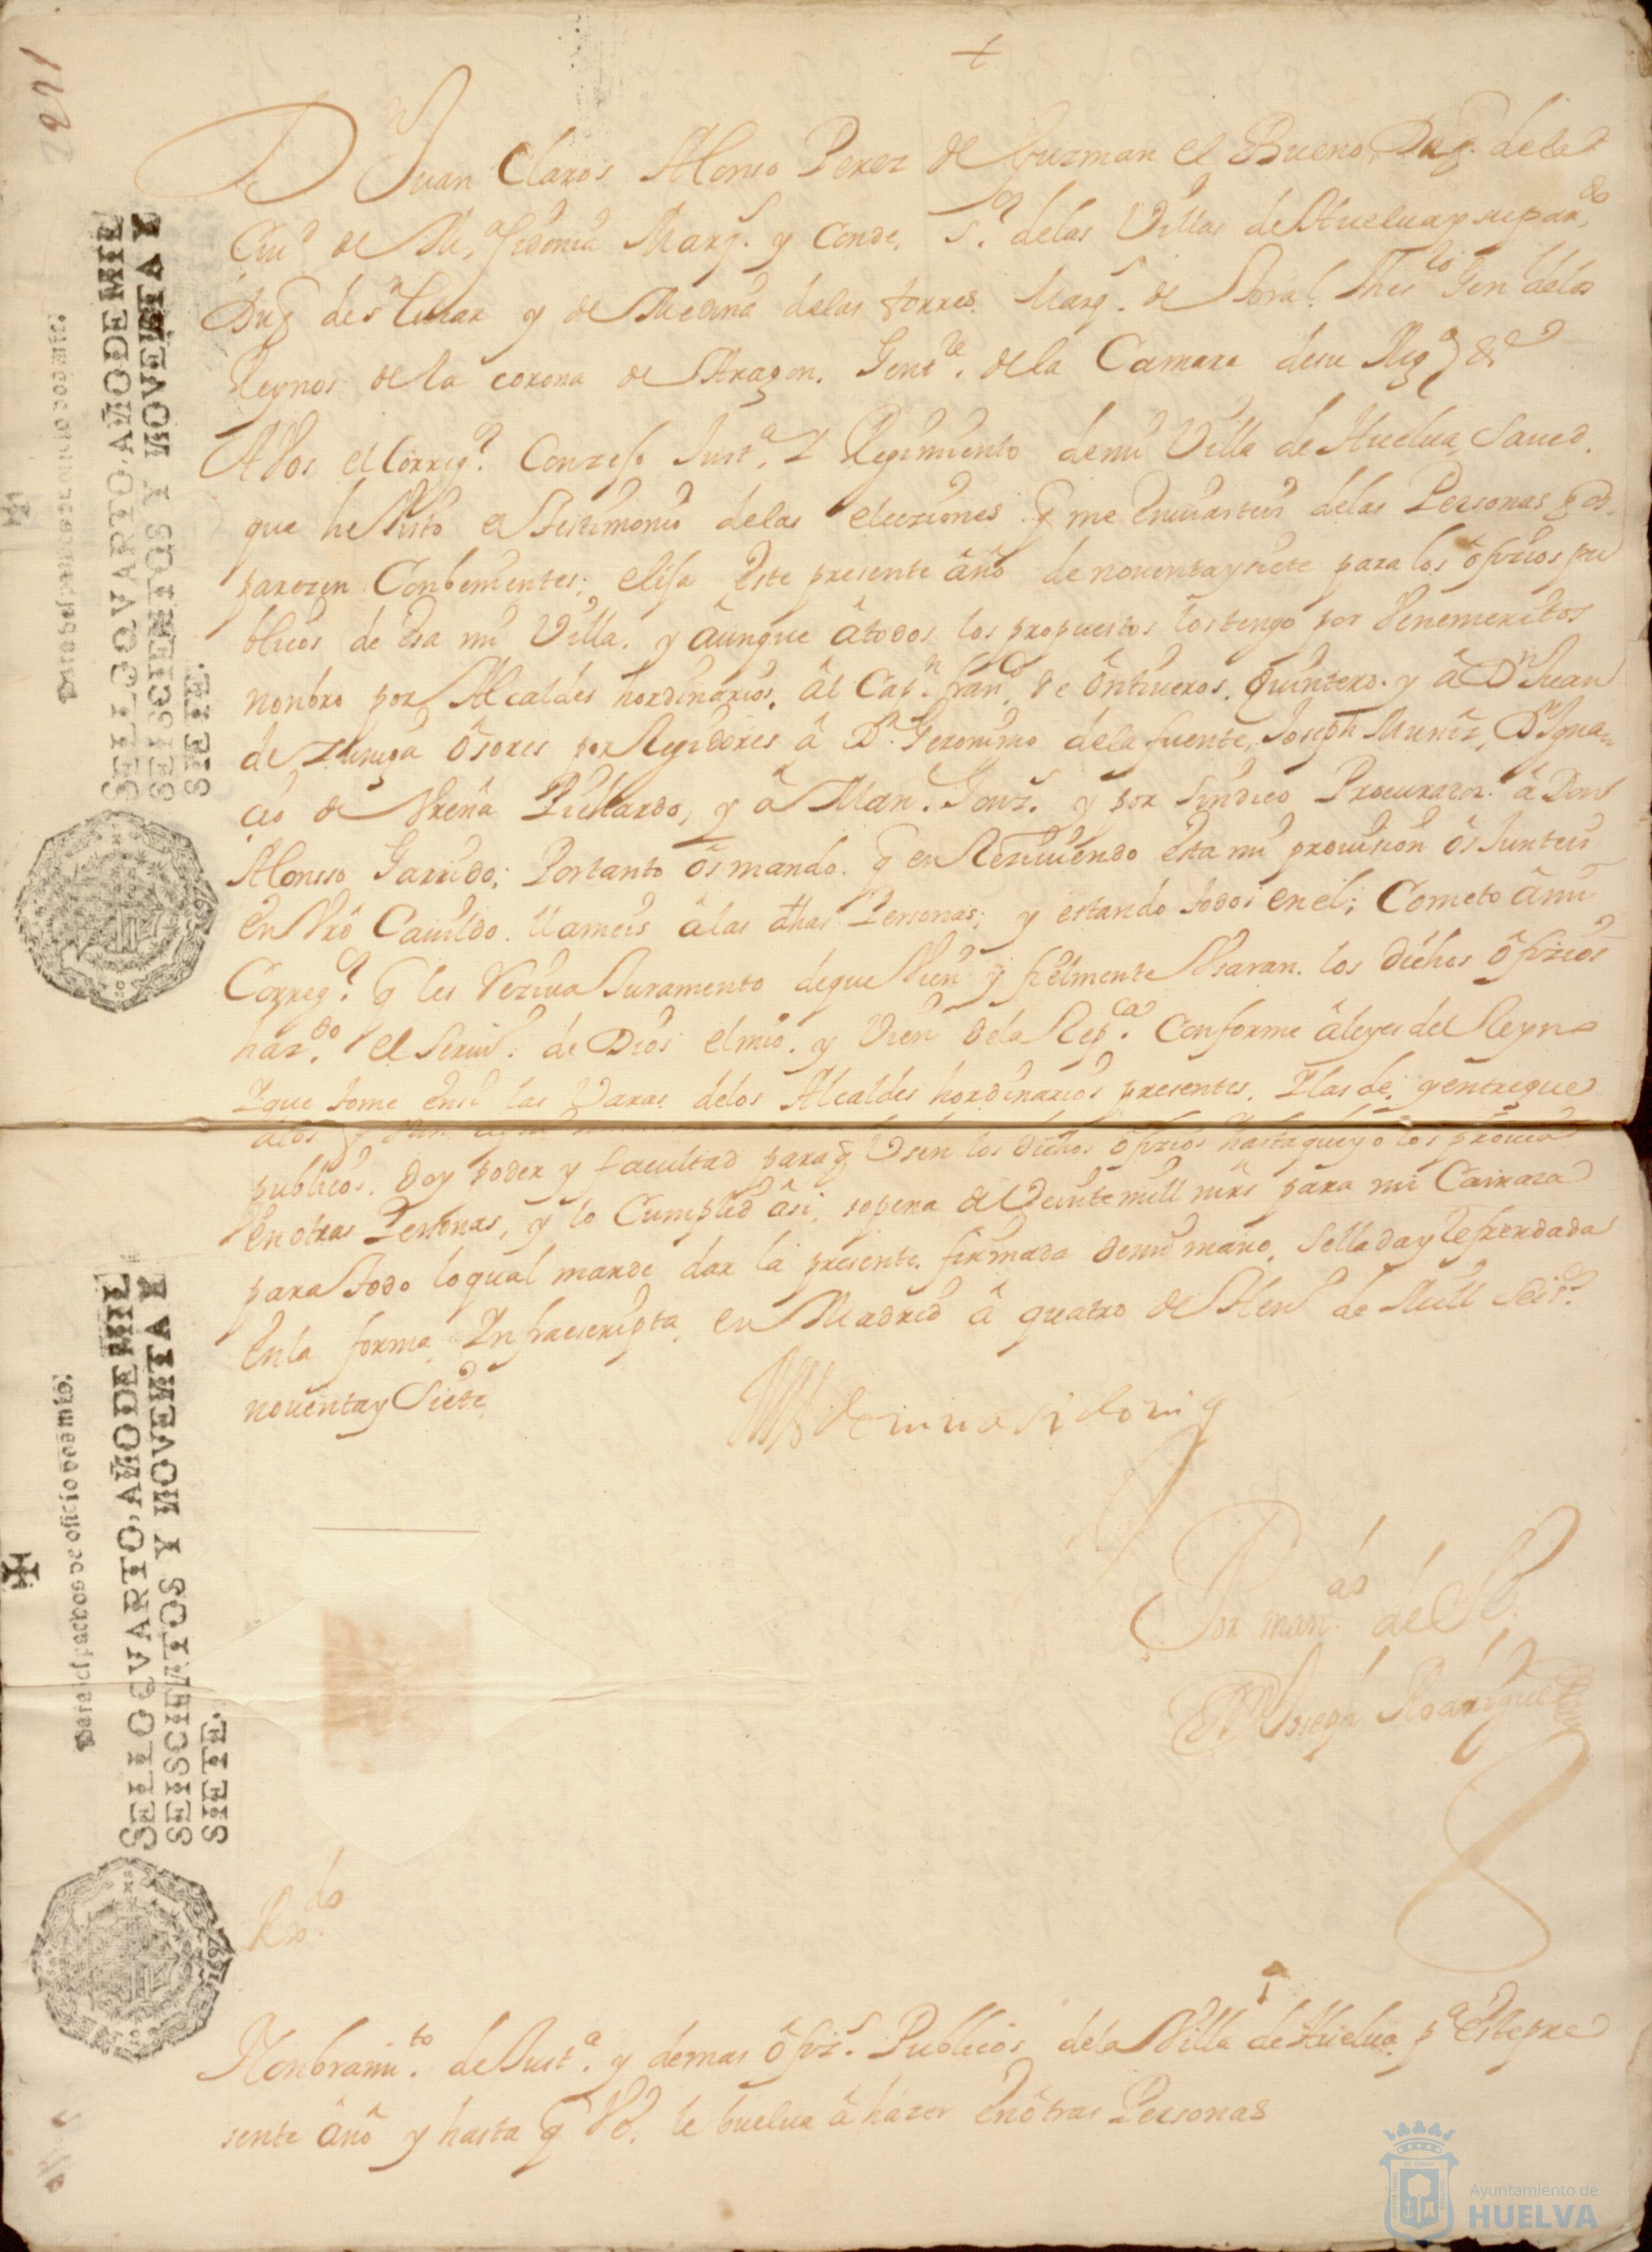 +
D Juan Claros Alonso Perez de Guzman el Bueno, Duq. dela
Ciud de Me.ª Sidonia Marq.s y Conde, S.or delas Villas de Huelua y su par.do
Duq de sn Lucar y de Medina delas torres. Marq.s de Toral. Thes.ro Gen.l delos
Reynos de la corona de Aragon. Gent.le dela Camara desu Mag.d &.ª
A Vos el Correg.or Conzejo Just.ª Y Regimiento demi Villa de Huelua, Saued.
que he Visto el testimonio delas elecziones q me Enuiasteis delas Personas q os
parezen Conbenientes; elija Este presente âño de nouenta y siete para los ôfizios pu
blicos de Esa mi Villa. y âunque âtodos los propuestos los tengo por Venemeritos
nonbro por Alcaldes hordinarios, âl Cap.n fran.co de ôntiueros. Quintero. y â Dn Juan
de Zuniga ôsores por Regidores â Dn Geronimo dela fuente, Joseph Muñiz, Dn Igna=
cio de Vreña Pichardo, y â Man.l Gonz.s y por Sindico Procurador. â Don
Alonsso Garrido; Portanto ôs mando. q en Reziuiendo esta mi prouision ôs Junteis
en Vrô Cauildo. llameis âlas dhas Personas; y estando todos en el; Cometo âmi
Correg.or q les Reziua Juramento deque Vien y fielmente Vsaran. los dichos ôfizios
haz.do el Seruiº. de Dios el mio. y Vien dela Rep.ca Conforme âleyes del Reyno
Y que tome ensi las Varas delos Alcaldes hordinarios presentes. Y las de, y entregue
publicos. doy poder y facultad para q Vsen los dichos ôfizios hasta que yo los prouea
en otras Personas, y lo Cumplid âsi, sopena de Veinte mill mrs para mi Camara
para todo lo qual mande dar la presente. firmada demi mano, Sellada y Refrendada
En la forma Infraescripta, en Madrid â quatro de Hen.º de Mill Seis.os
nouenta y Siete
Medinasidonia
Por man.do de S E.
Dn Joseph Rodriguez
R.do
Nonbrami.to de Just.ª y demas ôfiz.s Publicos dela Villa de Huelua p.ª Este pre
sente âño y hasta q VE. le buelua â hazer Enôtras Personas
Para despachos de oficio dos mrs.
SELLO QVARTO, AÑO DE MIL
SEISCIENTOS Y NOVENTA Y
SIETE.
Para despachos de oficio dos mrs.
SELLO QVARTO, AÑO DE MIL
SEISCIENTOS Y NOVENTA Y
SIETE.
Ayuntamiento de
HUELVA